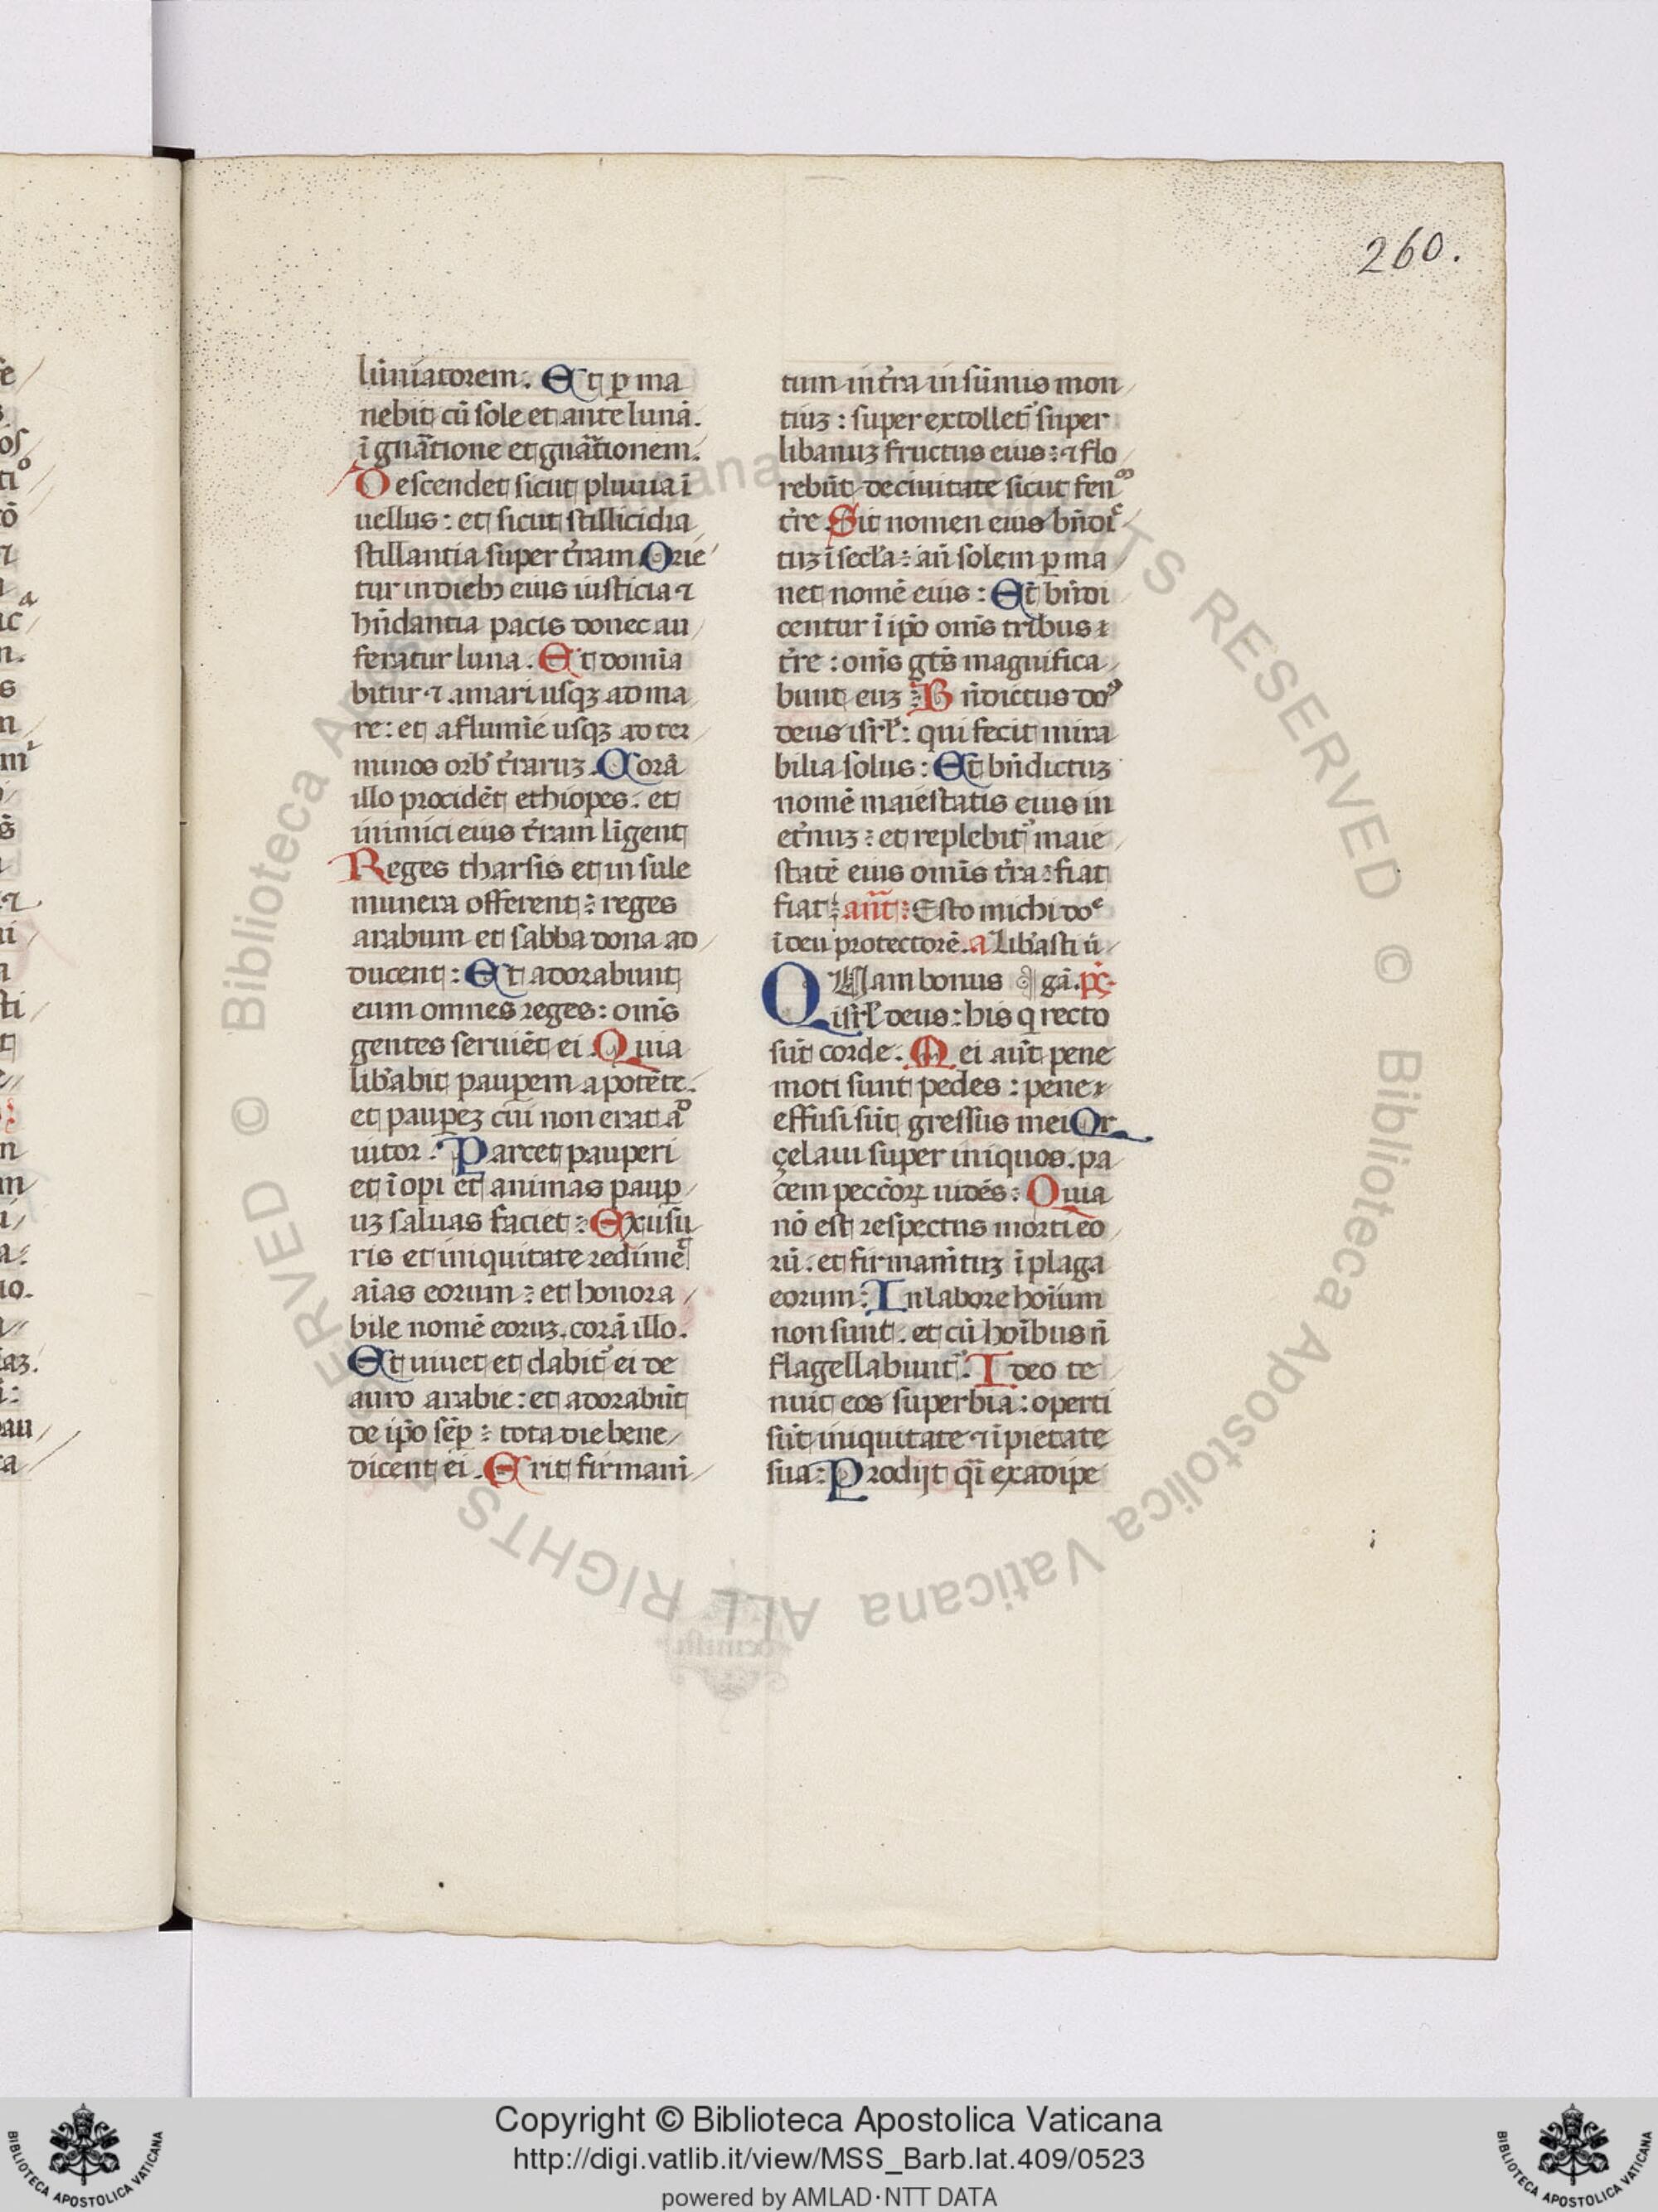 260.
lūniatorem. Et ꝑ ma
nebit cū sole et ante lunā.
ī gnātione et gnātionem.
Descendet sicut pluuia ī
uellus: et sicut stillicidia
stillantia super t̄ram Orie
tur in dieb; eius iusticia ⁊
hn̄dantia pacis donec au
feratur luna. Et domia
bitur ⁊ a mari usqꝫ ad ma
re: et a flumīe usqꝫ ad ter
minos orb̄ t̄raruꝫ. Corā
illo procidēt ethiopes. et
inimici eius t̄ram līgent
Reges tharsis et in sule
munera offerent: reges
arabum et sabba dona ad
ducent: Et adorabunt
eum omnes reges: om̄s
gentes seruiēt ei. Quia
lib̄abit pauꝑem a potēte.
et pauꝑeꝫ cui non erat aͦ
iutor: Parcet pauperi
et īopi et animas pauꝑ
uꝫ saluas faciet: Ex usu
ris et iniquitate redime
aīas eorum: et honora
bile nomē eoruꝫ. corā illo.
Et uiuet et dabit᷑ ei de
auro arabie: et adorabūt
de ip̄o sēp: tota die bene
dicent ei. Erit firmam̄
tum in t̄ra in sūmis mon
tiuꝫ: super extollet᷑ super
libanuꝫ fructus eius: ⁊ flo
rebūt de ciuitate sicut fen
t̄re. Sit nomen eius bn̄di
tuꝫ ī secl̄a: an̄ solem ꝑ ma
net nomē eius: Et bn̄di
centur ī ip̄o om̄s tribus
t̄re: om̄s gt̄s magnifica
bunt euꝫ: Bn̄dictus do
deus isrl̄: qui fecit mira
bilia solus: Et bn̄dictuꝫ
nomē maiestatis eius in
et̄nuꝫ: et replebit᷑ maie
statē eius omīs t̄ra: fiat
fiat: an̄t: Esto michi do
ī deū protectorē. a Lib̄asti ū
QUam bonus gā. p̄s.
isrl̄ deus: his q recto
sūt corde. Mei aūt pene
moti sunt pedes: pene
effusi sūt gressus mei Qr
çelaui super iniquos. pa
cem peccōꝝ uidēs: Quia
nō est respectus morti eo
rū. et firmam̄tuꝫ ī plaga
eorum: In labore hoīum
non sunt. et cū hoībus n̄
flagellabunt᷑. Ideo te
nuit eos superbia: operti
sūt iniquitate ⁊ īpietate
sua: Prodijt qī ex adipe
Copyright © Biblioteca Apostolica Vaticana
http://digi.vatlib.it/view/MSS_Barb.lat.409/0523
powered by AMLAD·NTT DATA